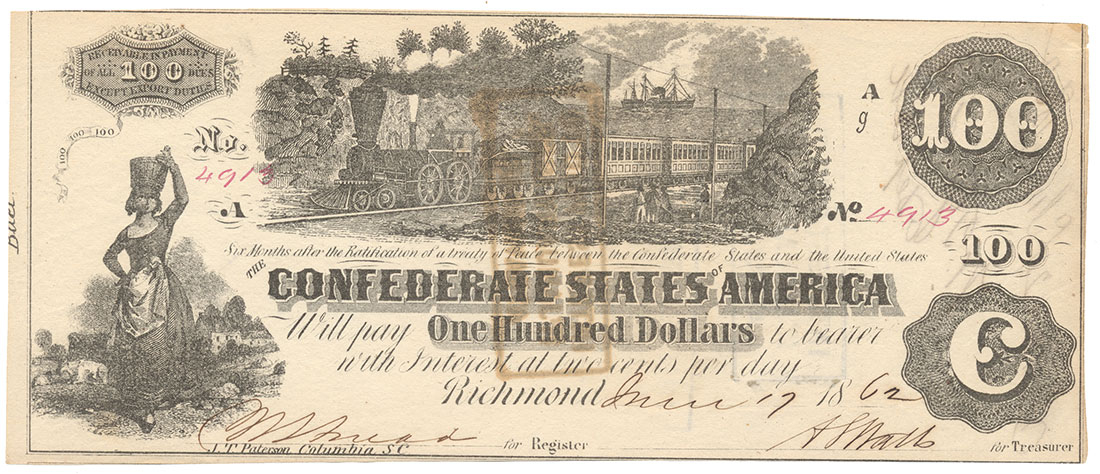 RECEIVABLE IN PAYMENT
OF ALL 100 DUES
EXCEPT EXPORT DUTIES
100 100 100
No.
4913
A
A
g
100
No 4913
100
Six Months after the Ratification of a treaty of Peace between the Confederate States and the United States
THE
CONFEDERATE STATES OF AMERICA
Will pay One Hundred Dollars to bearer
with Interest at two cents per day
Richmond June 17 1862
C
for Register
for Treasurer
J.T. Paterson, Columbia, S.C